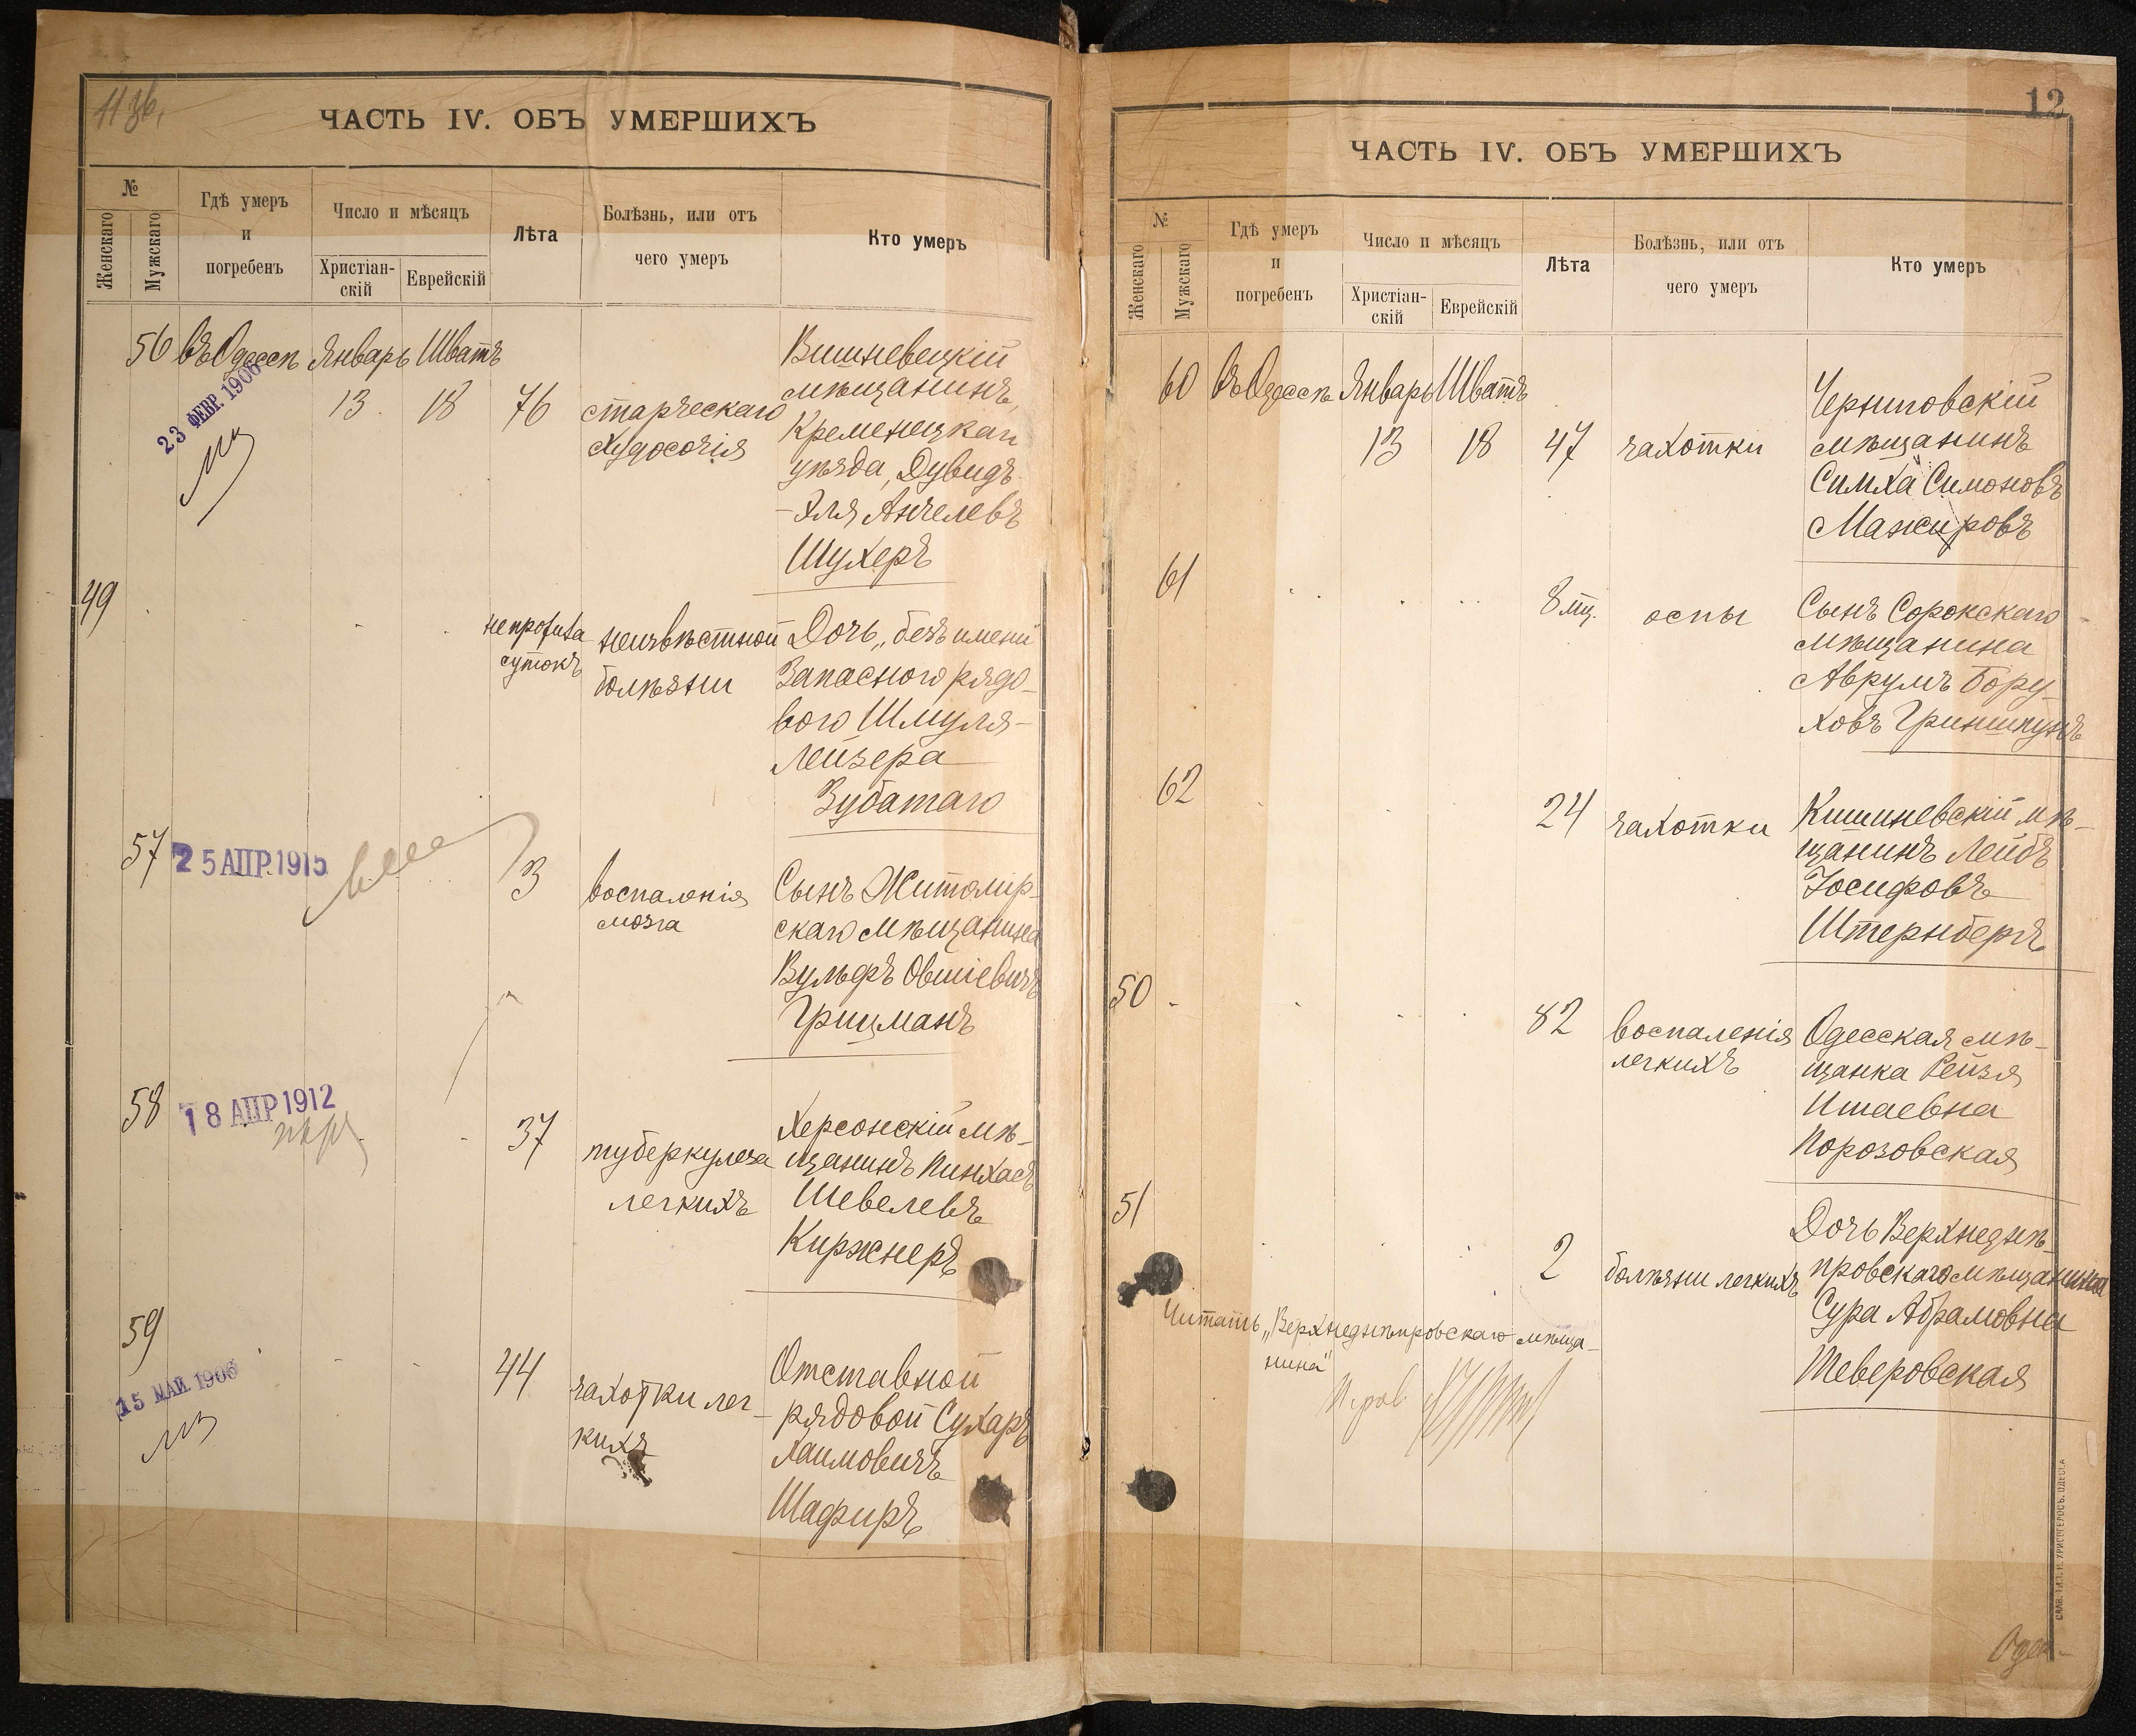 11 зв.
ЧАСТЬ IV. ОБЪ УМЕРШИХЪ
№
Женскаго
Мужскаго
Гдѣ умеръ
и
погребенъ
Число и мѣсяцъ
Христіан-
скій
Еврейскій
Лѣта
Болѣзнь, или отъ
чего умеръ
Кто умеръ
56 въ Одессѣ Январь Шватъ
13 18 76
23 ФЕВР. 1906
старческаго
худосочія
Вишневецкій
мѣщанинъ,
Кременецкаго
уѣзда, Дувидъ
-Эля Анчелевъ
Шухеръ
49
суток
неизвѣстной
болѣзни
Дочь „безъ имени"
Запасного рядо-
вого Шмуля-
Лейзера
Зубатаго
57
25 АПР. 1915
3
воспаленія
мозга
Сынъ Житомир-
скаго мѣщанина
Вульфъ Овшіевичъ
Грицманъ
58
18 АПР 1912
37
туберкулеза
легкихъ
Херсонскій мѣ-
щанинъ Пинхасъ
Шевелевъ
Киржнеръ
59
15 МАЙ 1906
44
чахотки лег-
кихъ
Отставной
рядовой Сухаръ
Хаимовичъ
Шафиръ
12
ЧАСТЬ IV. ОБЪ УМЕРШИХЪ
№
Женскаго
Мужскаго
Гдѣ умеръ
и
погребенъ
Число и мѣсяцъ
Христіан-
скій
Еврейскій
Лѣта
Болѣзнь, или отъ
чего умеръ
Кто умеръ
60 въ Одессѣ Январь Шватъ
13 18 47 чахотки
Черниговскій
мѣщанинъ
Симха Симоновъ
Мажировъ
61
8 мц. оспы
Сынъ Сорокскаго
мѣщанина
Аврумъ Бору-
ховъ Гриншпунъ
62
24 чахотки
Кишиневскій мѣ-
щанинъ Лейбъ
Іосифовъ
Штернбергъ
50
82
воспаленія
легкихъ
Одесская мѣ-
щанка Рейзя
Ишаевна
Порозовская
51
2 болѣзни легкихъ
Дочь Верхнеднѣ-
провскаго мѣщанина
Сура Абрамовна
Теверовская
Читать „Верхнеднѣпровскаго мѣща-
нина"
САЛВ. ТИП. Н. ХРИСОГЕЛОСЪ. ОДЕССА